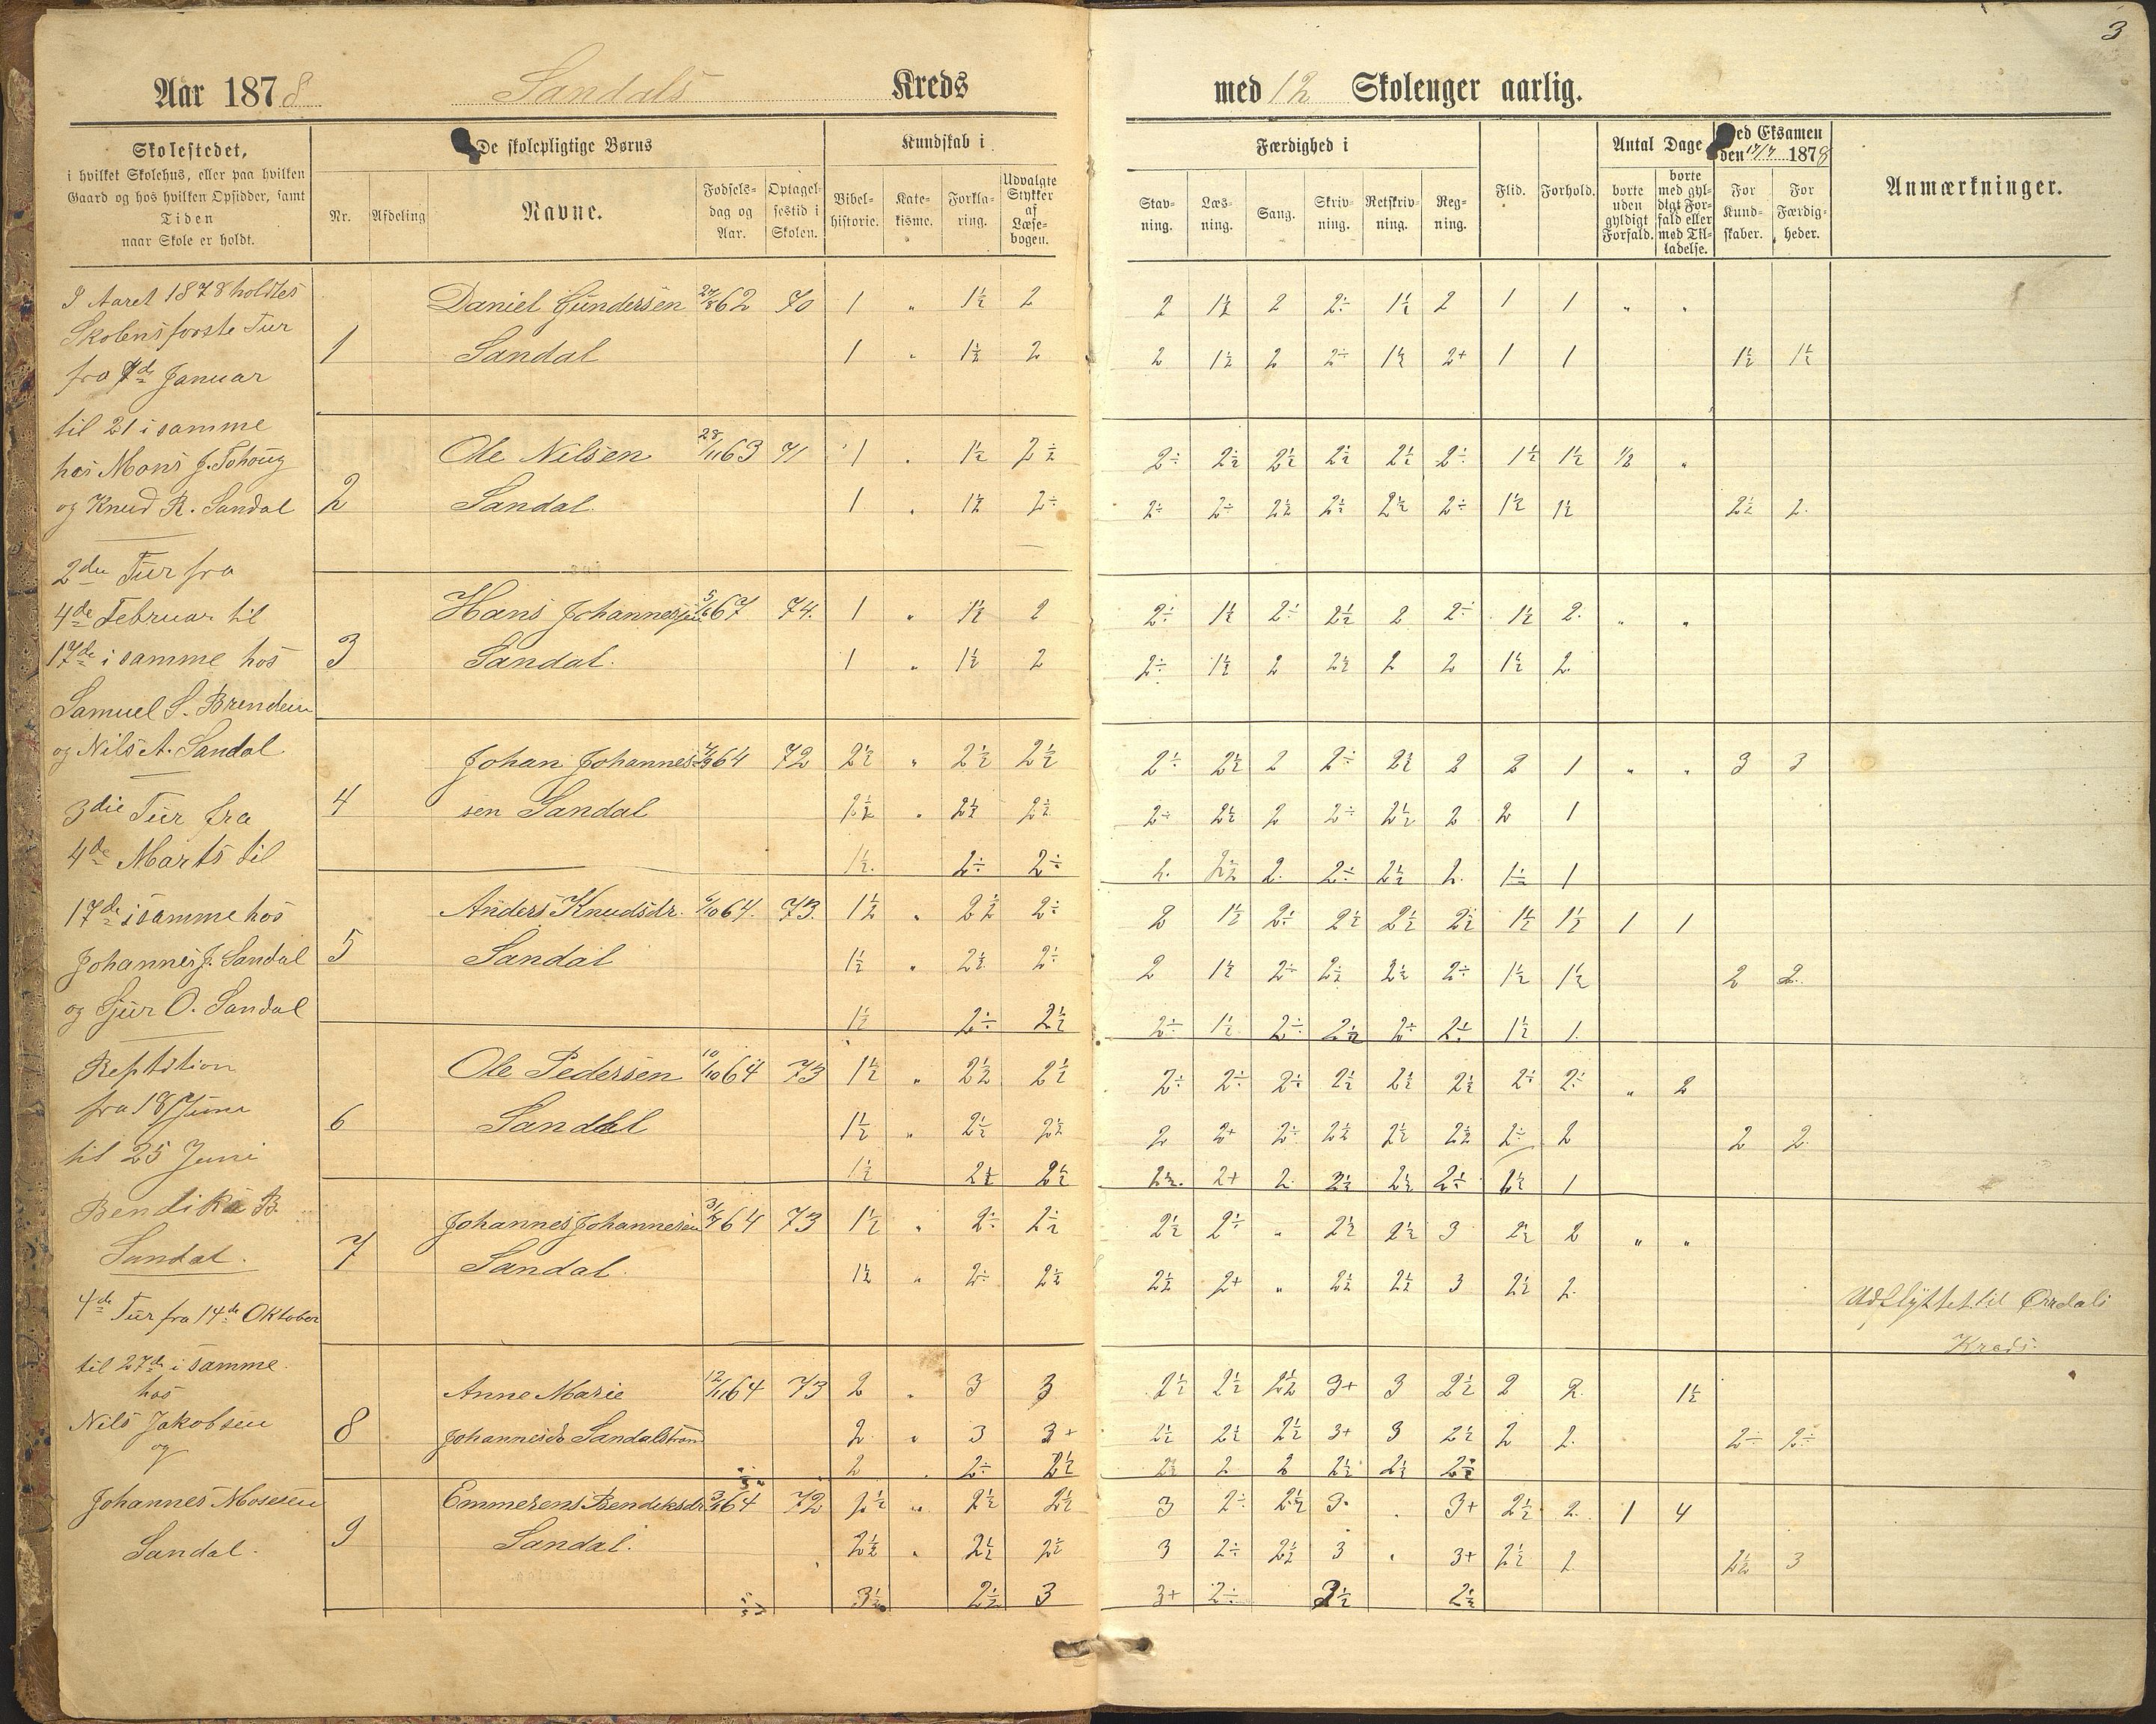 3
Aar 1878 Sandals Kreds
med 12 Skoleuger aarlig.
Skolestedet,
i hvilket Skolehus, eller paa hvilken
Gaard og hos hvilken Opsidder, samt
Tiden
naar Skole er holdt.
De skolepligtige Børns
Nr.
Afdeling
Navne.
Fødsels-
dag og
Aar.
Optagel-
sestid i
Skolen.
Kundskab i
Bibel-
historie.
Kate-
kisme.
Forkla-
ring.
Udvalgte
Stykker
af
Læse-
bogen.
Færdighed i
Stav-
ning.
Læs-
ning.
Sang.
Skriv-
ning.
Retskriv-
ning.
Reg-
ning.
Flid.
Forhold.
Antal Dage
borte
uden
gyldigt
Forfald.
borte
med gyl-
digt For-
fald eller
med Til-
ladelse.
Ved Eksamen
den 17/7 1878
For
Kund-
skaber.
For
Færdig-
heder.
Anmærkninger.
I Aaret 1878 holdtes
Skolens første Tur
fra 7de Januar
til 21 i samme
hos Mons J.
og Knud R. Sandal
2den Tur fra
4de Februar til
17de i samme hos
Samuel S. Brendeen
og Nils A. Sandal
3die Tur fra
4de Marts til
17de i samme hos
Johannes J. Sandal
og Sjur O. Sandal
Reptition
fra 18 Juni
til 25 Juni
Bendik B.
Sandal.
4de Tur fra 14de Oktober
til 27de i samme
hos
Nils Jakobsen
og
Johannes Mosesen
Sandal.
Daniel Gundersen 27/8 62 70 1 " 1½ 2 2 1½ 2 2÷ 1½ 2 1 1 " "
1 Sandal 1 " 1½ 2 2 1½ 2 2÷ 1½ 2+ 1 1 1½ 1½
Ole Nilsen 28/11 63 71 1 " 1½ 2½ 2÷ 2½ 2½ 2½ 2½ 2÷ 1½ 1½ ½ "
2 Sandal. 1 " 1½ 2÷ 2÷ 2÷ 2½ 2½ 2½ 2÷ 1½ 1½ 2½ 2.
Hans Johannessen 5/6 67 74. 1 " 1½ 2 2÷ 1½ 2÷ 2½ 2 2÷ 1½ 2. " "
3 Sandal. 1 " 1½ 2 2÷ 1½ 2 2½ 2 2 1½ 2.
Johan Johannes- 64 72 2½ " 2½ 2½ 2÷ 2½ 2 2÷ 2½ 2 2 1 " " 3 3
4 sen Sandal 2½ " 2½ 2½ 2÷ 2½ 2 2÷ 2½ 2 2 1
1½. 2÷ 2÷ 2. 2½ 2. 2÷ 2½ 2. 1÷ 1
Anders Knudsdr. 64. 73. 1½ " 2½ 2÷ 2 1½ 2÷ 2½ 2½ 2½ 1½ 1½ 1 1
5 Sandal 1½ " 2½ 2÷ 2 1½ 2÷ 2½ 2½ 2÷ 1½ 1½ 2 2.
1½ 2÷ 2½ 2÷ 1½ 2÷ 2½ 2÷ 2÷ 1½ 1.
Ole Pedersen 10/10 64 73 1½ " 2½ 2½ 2÷ 2÷ 2÷ 2½ 2½ 2½ 2÷ 2÷ " 2
6 Sandal 1½ " 2½ 2½ 2 2+ 2÷ 2½ 2½ 2½ 2÷ 2 2 2.
1½ 2½ 2½ 2½. 2+ 2. 2½ 2½ 2÷ 2½ 1
Johannes Johannesen 3/7 64 73 1½ " 2÷ 2½ 2½ 2÷ " 2½ 2½ 3 2½ 2 " "
7 Sandal. 1½ " 2÷ 2½ 2½ 2+ " 2½ 2½ 3 2½ 2.
Udflyttet til Ørredals
Kreds.
Anne Marie 12/11 64 73 2 " 3 3 2½ 2½ 2½ 3+ 3 2½ 2 2. 1½
8 Johannesdr Sandalstrand 2. " 3 3+ 2½ 2½ 2½ 3+ 3 2½ 2 2. 2÷ 2÷
2 2÷ 2½ 2½ 2 2 2½ 2½ 2½
Emmerens Bendiksdr 64 72 2½ " 2½ 2½ 3 2÷ 2½ 3. " 3+ 2½ 2. 1 4
9 Sandal. 2½ " 2½ 2½ 3 2÷ 2½ 3 " 3+ 2½ 2. 2½ 3
3½ 2½ 3 3+ 2÷ 3½ 2½